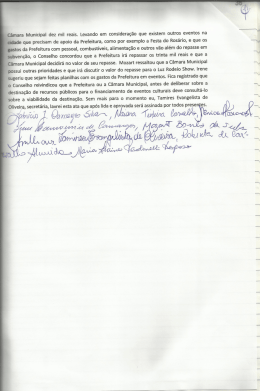 Câmara Municipal dez mil reais. Levando em consideração que existem outros eventos na
cidade que precisam de apoio da Prefeitura, como por exemplo a Festa do Rosário, e que os
gastos da Prefeitura com pessoal, combustíveis, alimentação e outros vão além do repasse em
subvenção, o Conselho concordou que a Prefeitura irá repassar os trinta mil reais e que a
Câmara Municipal decidirá no valor de seu repasse. Mozart ressaltou que a Câmara Municipal
possui outras prioridades e que irá discutir o valor do repasse para a Luz Rodeio Show. Irene
sugeriu que sejam feitas planilhas com os gastos da Prefeitura em eventos. Fica registrado que
o Conselho reivindicou que a Prefeitura ou a Câmara Municipal, antes de deliberar sobre a
destinação de recursos públicos para o financiamento de eventos culturais deve consultá-lo
sobre a viabilidade da destinação. Sem mais para o momento eu, Tamires Evangelista de
Oliveira, secretária, lavrei esta ata que após lida e aprovada será assinada por todos presentes.
Silva, Carvalho,
Mozart
Tamires Evangelista de Oliveira, de
Almeida Maria